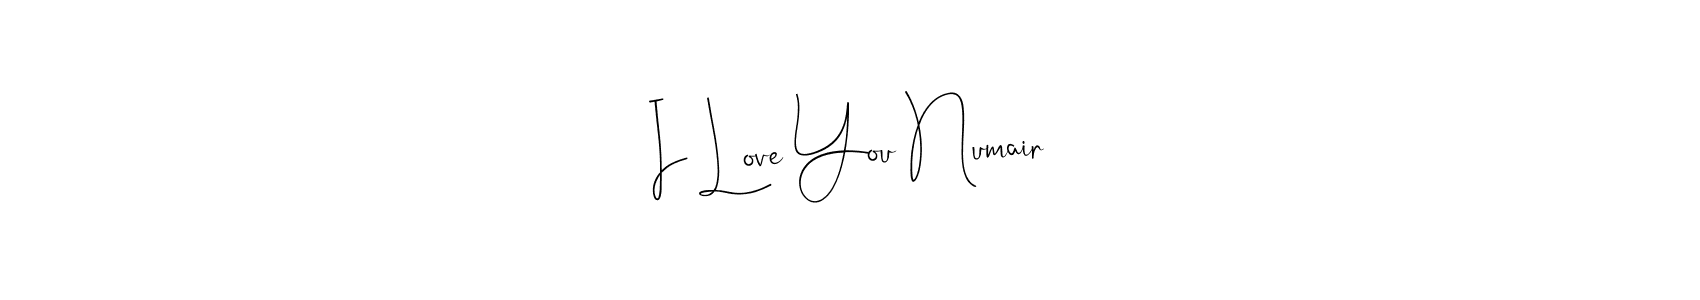 I Love You Numair